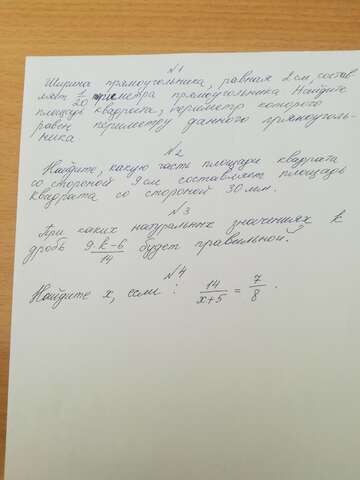 №1
Ширина прямоугольника, равная 2 см, состав
ляет 1/20 периметра прямоугольника Найдите
площадь квадрата, периметр которого
равен периметру данного прямоуголь-
ника
№2
Найдите, какую часть площади квадрата
со стороной 9 см составляет площадь
квадрата со стороной 30 мм.
№3
При каких натуральных значениях k
дробь 9·k-6/14 будет правильной?
№4
Найдите x, если: 14/x+5 = 7/8.